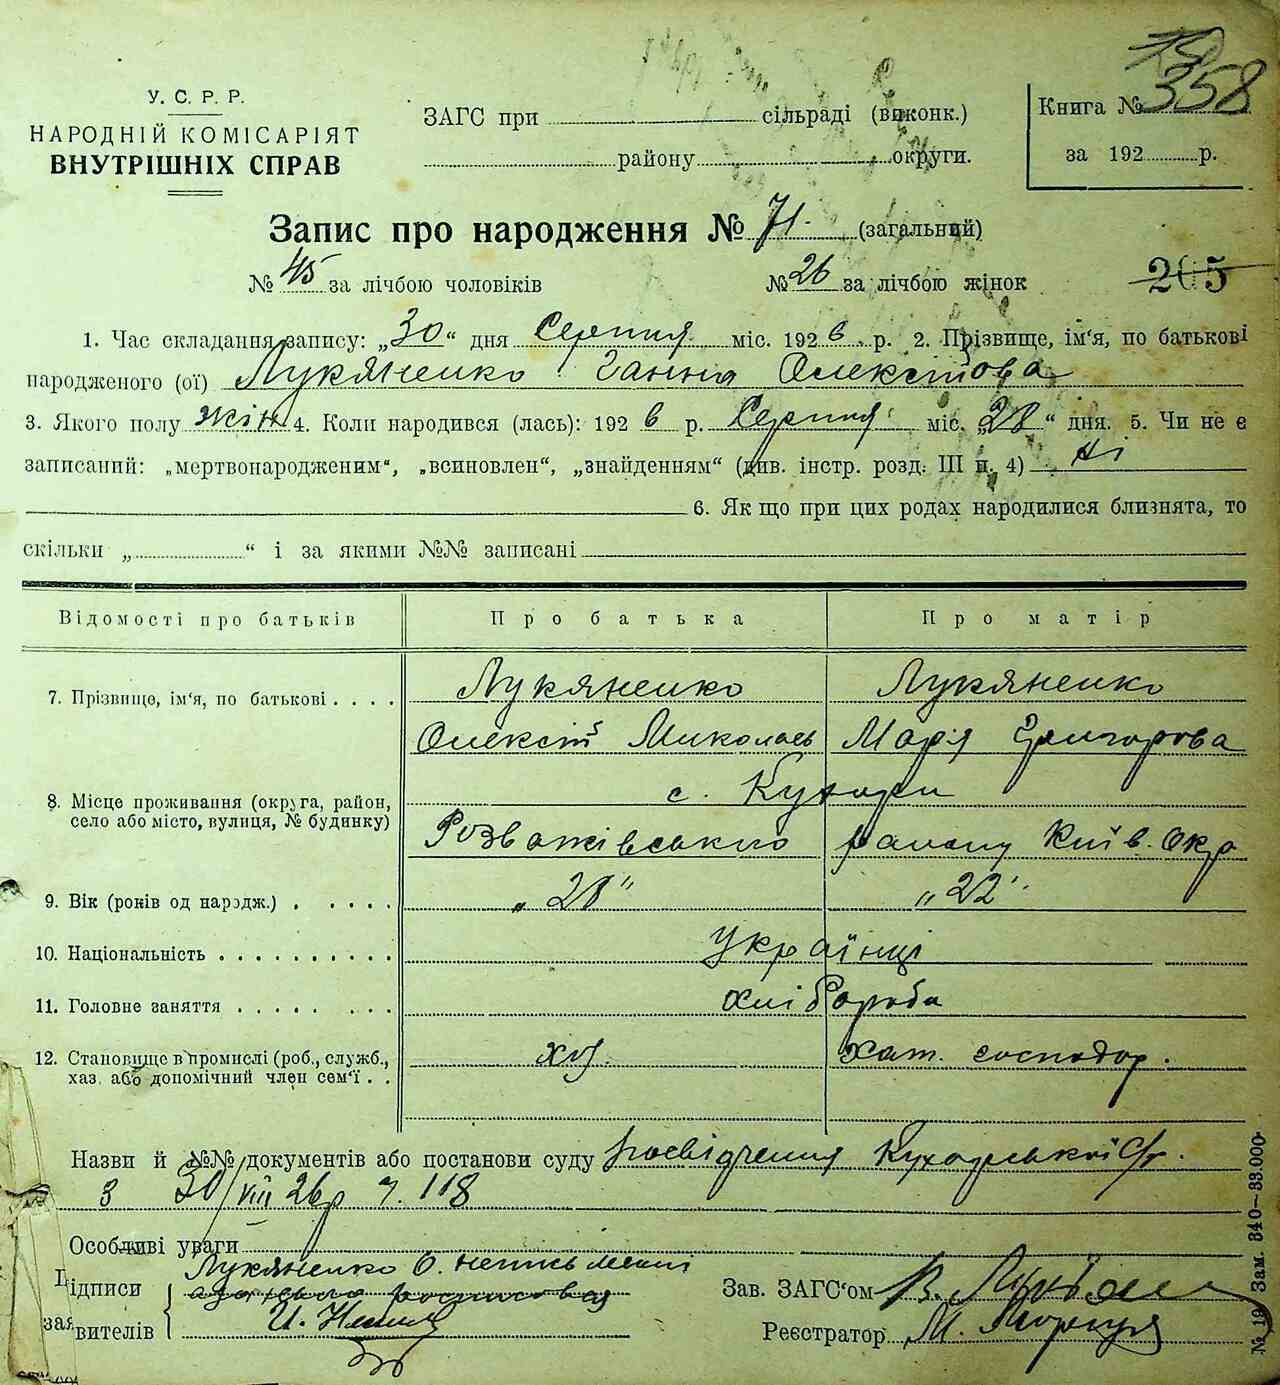 358
У. С. Р. Р.
НАРОДНІЙ КОМІСАРІЯТ
ВНУТРІШНІХ СПРАВ
ЗАГС при сільраді (виконк.)
району округи.
Книга №
за 192 р.
Запис про народження № 71. (загальний)
№ 45 за лічбою чоловіків № 26 за лічбою жінок
205
1. Час складання запису: „30“ дня Серпня міс. 1926 р. 2. Прізвище, ім‘я, по батькові
народженого (ої) Лукяненко Ганна Олексіїова
3. Якого полу жін 4. Коли народився (лась): 1926 р. Серпня міс. „28“ дня. 5. Чи не є
записаний: „мертвонародженим“, „всиновлен“, „знайденням“ (див. інстр. розд. III п. 4) Ні
6. Як що при цих родах народилися близнята, то
скільки „ “ і за якими №№ записані
Відомості про батьків Про батька Про матір
7. Прізвище, ім‘я, по батькові . . . . Лукяненко Лукяненко
Олексій Миколаєв Марія Григорова
8. Місце проживання (округа, район,
село або місто, вулиця, № будинку)
с. Кухари
Розважівського району Київ. Окр
9. Вік (років од нарэдж.) . . . . . „28“ „22“
10. Національність . . . . . . . . . . Українці
11. Головне заняття . . . . . . . . хлібороба
12. Становище в промислі (роб., служб.,
хаз. або допомічний член сем‘ї . .
хаз. хат. господар.
Назви й №№ документів або постанови суду посвідчення Кухарської С/р.
з 30/VIII 26 р ч. 118
Особливі уваги
Підписи
заявителів
Лукяненко О. неписьменні
Зав. ЗАГС‘ом В.
Реєстратор М.
№ 19 Зам. 340—33.000·